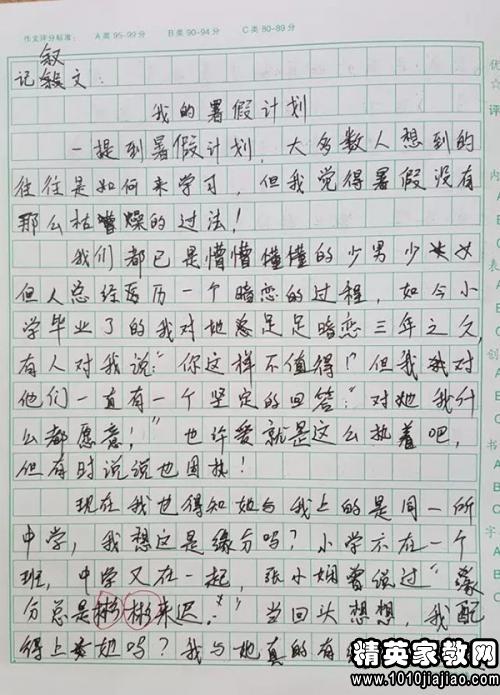 作文评分标准： A类95-99分 B类90-94分 C类80-89分
优
叙
记文：
评
我的暑假计划
一提到暑假计划，大多数人想到的
往往是如何来学习，但我觉得暑假没有
内
那么枯燥的过法！
我们都已是懵懵懂懂的少男少女
表
但人总经历一个暗恋的过程，如今小
学毕业了的我对她足足暗恋三年之久，
有人对我说："你这样不值得！"但我对
创
他们一直有一个坚定的回答："对她我什
么都愿意！"也许爱就是这么执着吧，
但有时说说也固执！
现在我也得知她与我上的是同一所
中学，我想这是缘分吗？小学不在一个
字
班，中学又在一起，张小娴曾说过"缘
分总是彬彬来迟。"当回头想想，我配
得上她吗？我与她真的有
精英家教网
www.1010jiajiao.com